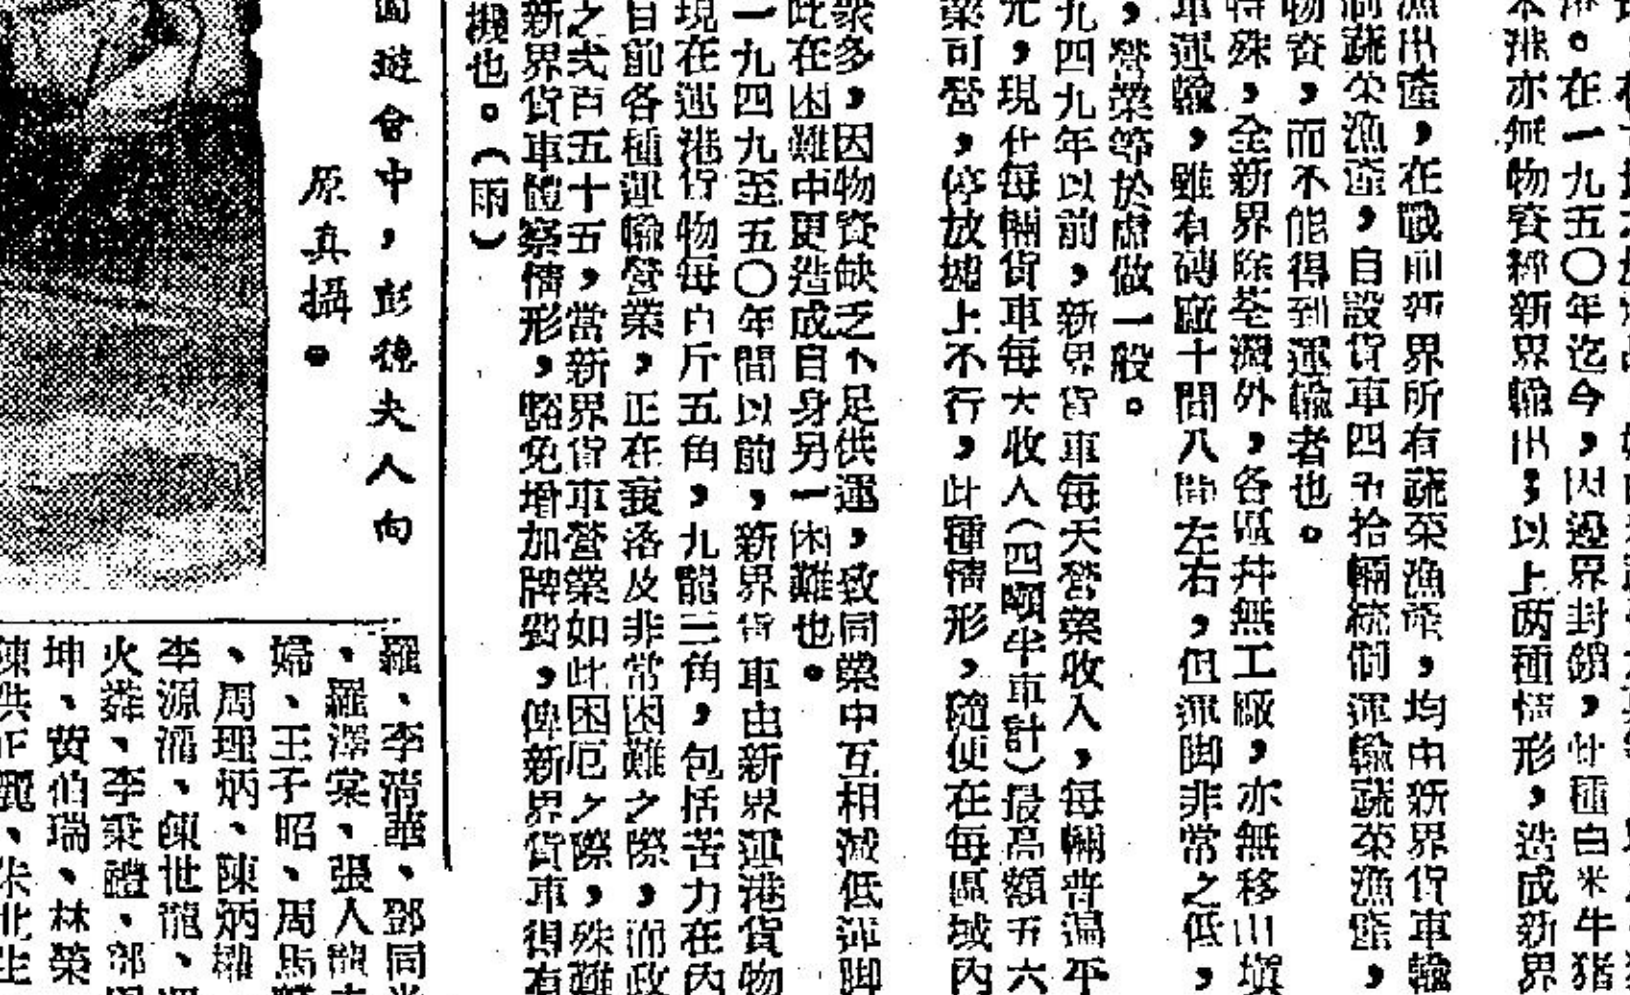 港。在一九五〇年迄今，因邊界封鎖，此種白米牛猪
本港亦無物資經新界輸出；以上两種情形，造成新界
漁出產，在戰前新界所有蔬菜漁產，均由新界貨車輸
蔬菜漁產，自設貨車四五拾輛統個運輸蔬菜漁產，
物資，而不能得到運輸者也。
特殊，全新界除荃灣外，各區幷無工廠，亦無移山塡
車運輸，雖有磚廠十間八間左右，但運脚非常之低，
，營業等於虛做一般。
九四九年以前，新界貨車每天營業收入，每輛普遍平
元，現在每輛貨車每天收入（四噸半車計）最高額五六
業可營，停放塘上不行，此種情形，隨便在每區域內
衆多，因物資缺乏不足供運，致同業中互相減低運脚
此在困難中更造成自身另一困難也。
一九四九至五〇年間以前，新界貨車由新界運港貨物
現在運港貨物每百斤五角，九龍三角，包括苦力在內
目前各種運輸營業，正在衰洛及非常困難之際，而政
之弍百五十五，當新界貨車營業如此困厄之際，殊難
新界貨車體察情形，豁免增加牌費，俾新界貨車得有
機也。（雨）
園遊會中，彭德夫人向
原真攝。
羅、李清華、鄧同
、羅澤棠、張人龍
婦、王子昭、周
、周理炳、陳炳
李源滔、陳世龍、
火粦、李秉禮、
坤、黄伯瑞、林榮
陳洪正